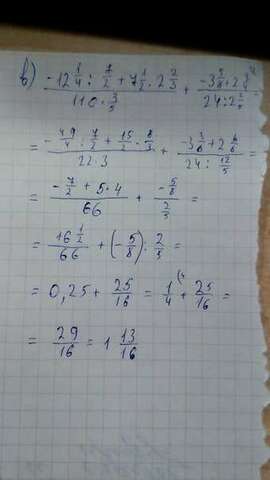 в) (-12 1/4 : 7/2 + 7 1/2 · 2 2/3)/(110 · 3/5) + (-3 3/8 + 2 3/4)/(24 : 2 2/5) =
= (-49/4 : 7/2 + 15/2 · 8/3)/(22 · 3) + (-3 3/8 + 2 6/8)/(24 : 12/5) =
= (-7/2 + 5 · 4)/66 + (-5/8)/(2/5) =
= (+16 1/2)/66 + (-5/8) : 2/5 =
= 0,25 + 25/16 = 1/4 + 25/16 =
= 29/16 = 1 13/16